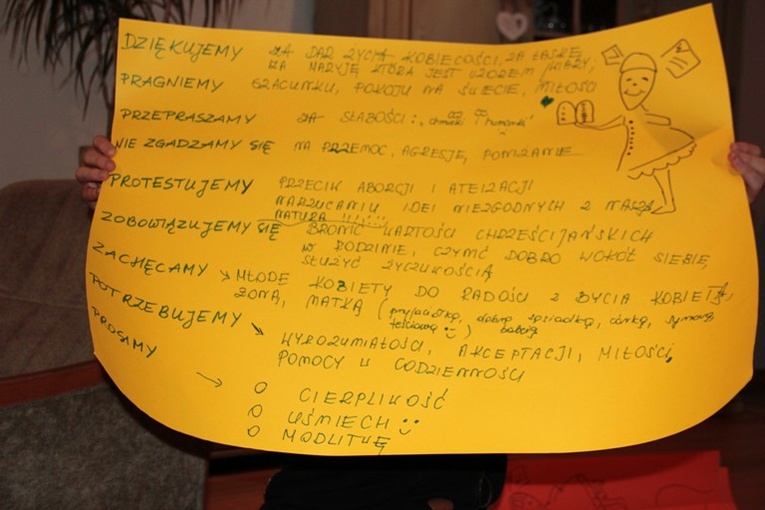 DZIĘKUJEMY ZA DAR ŻYCIA KOBIECOŚCI, ZA ŁASKĘ,
ZA MARYJĘ KTÓRA JEST WZOREM WIARY,
PRAGNIEMY SZACUNKU, POKOJU NA ŚWIECIE, MIŁOŚCI
PRZEPRASZAMY ZA SŁABOŚCI: „chmurki" „humorki"
NIE ZGADZAMY SIĘ NA PRZEMOC, AGRESJĘ, PONIŻANIE
PROTESTUJEMY PRZECIW ABORCJI I ATEIZACJI
NARZUCANIU IDEI NIEZGODNYCH Z NASZĄ
NATURĄ !!!!!!
ZOBOWIĄZUJEMY SIĘ BRONIĆ WARTOŚCI CHRZEŚCIJAŃSKICH
W RODZINIE, CZYNIĆ DOBRO WOKÓŁ SIEBIE,
SŁUŻYĆ ŻYCZLIWOŚCIĄ
ZACHĘCAMY → MŁODE KOBIETY DO RADOŚCI Z BYCIA KOBIETĄ,
ŻONĄ, MATKĄ (przyjaciółką, dobrą sąsiadką, córką, synową,
teściową :) babcią)
POTRZEBUJEMY → WYROZUMIAŁOŚCI, AKCEPTACJI, MIŁOŚCI,
POMOCY W CODZIENNOŚCI
PROSIMY → O CIERPLIWOŚĆ
O UŚMIECH :)
O MODLITWĘ